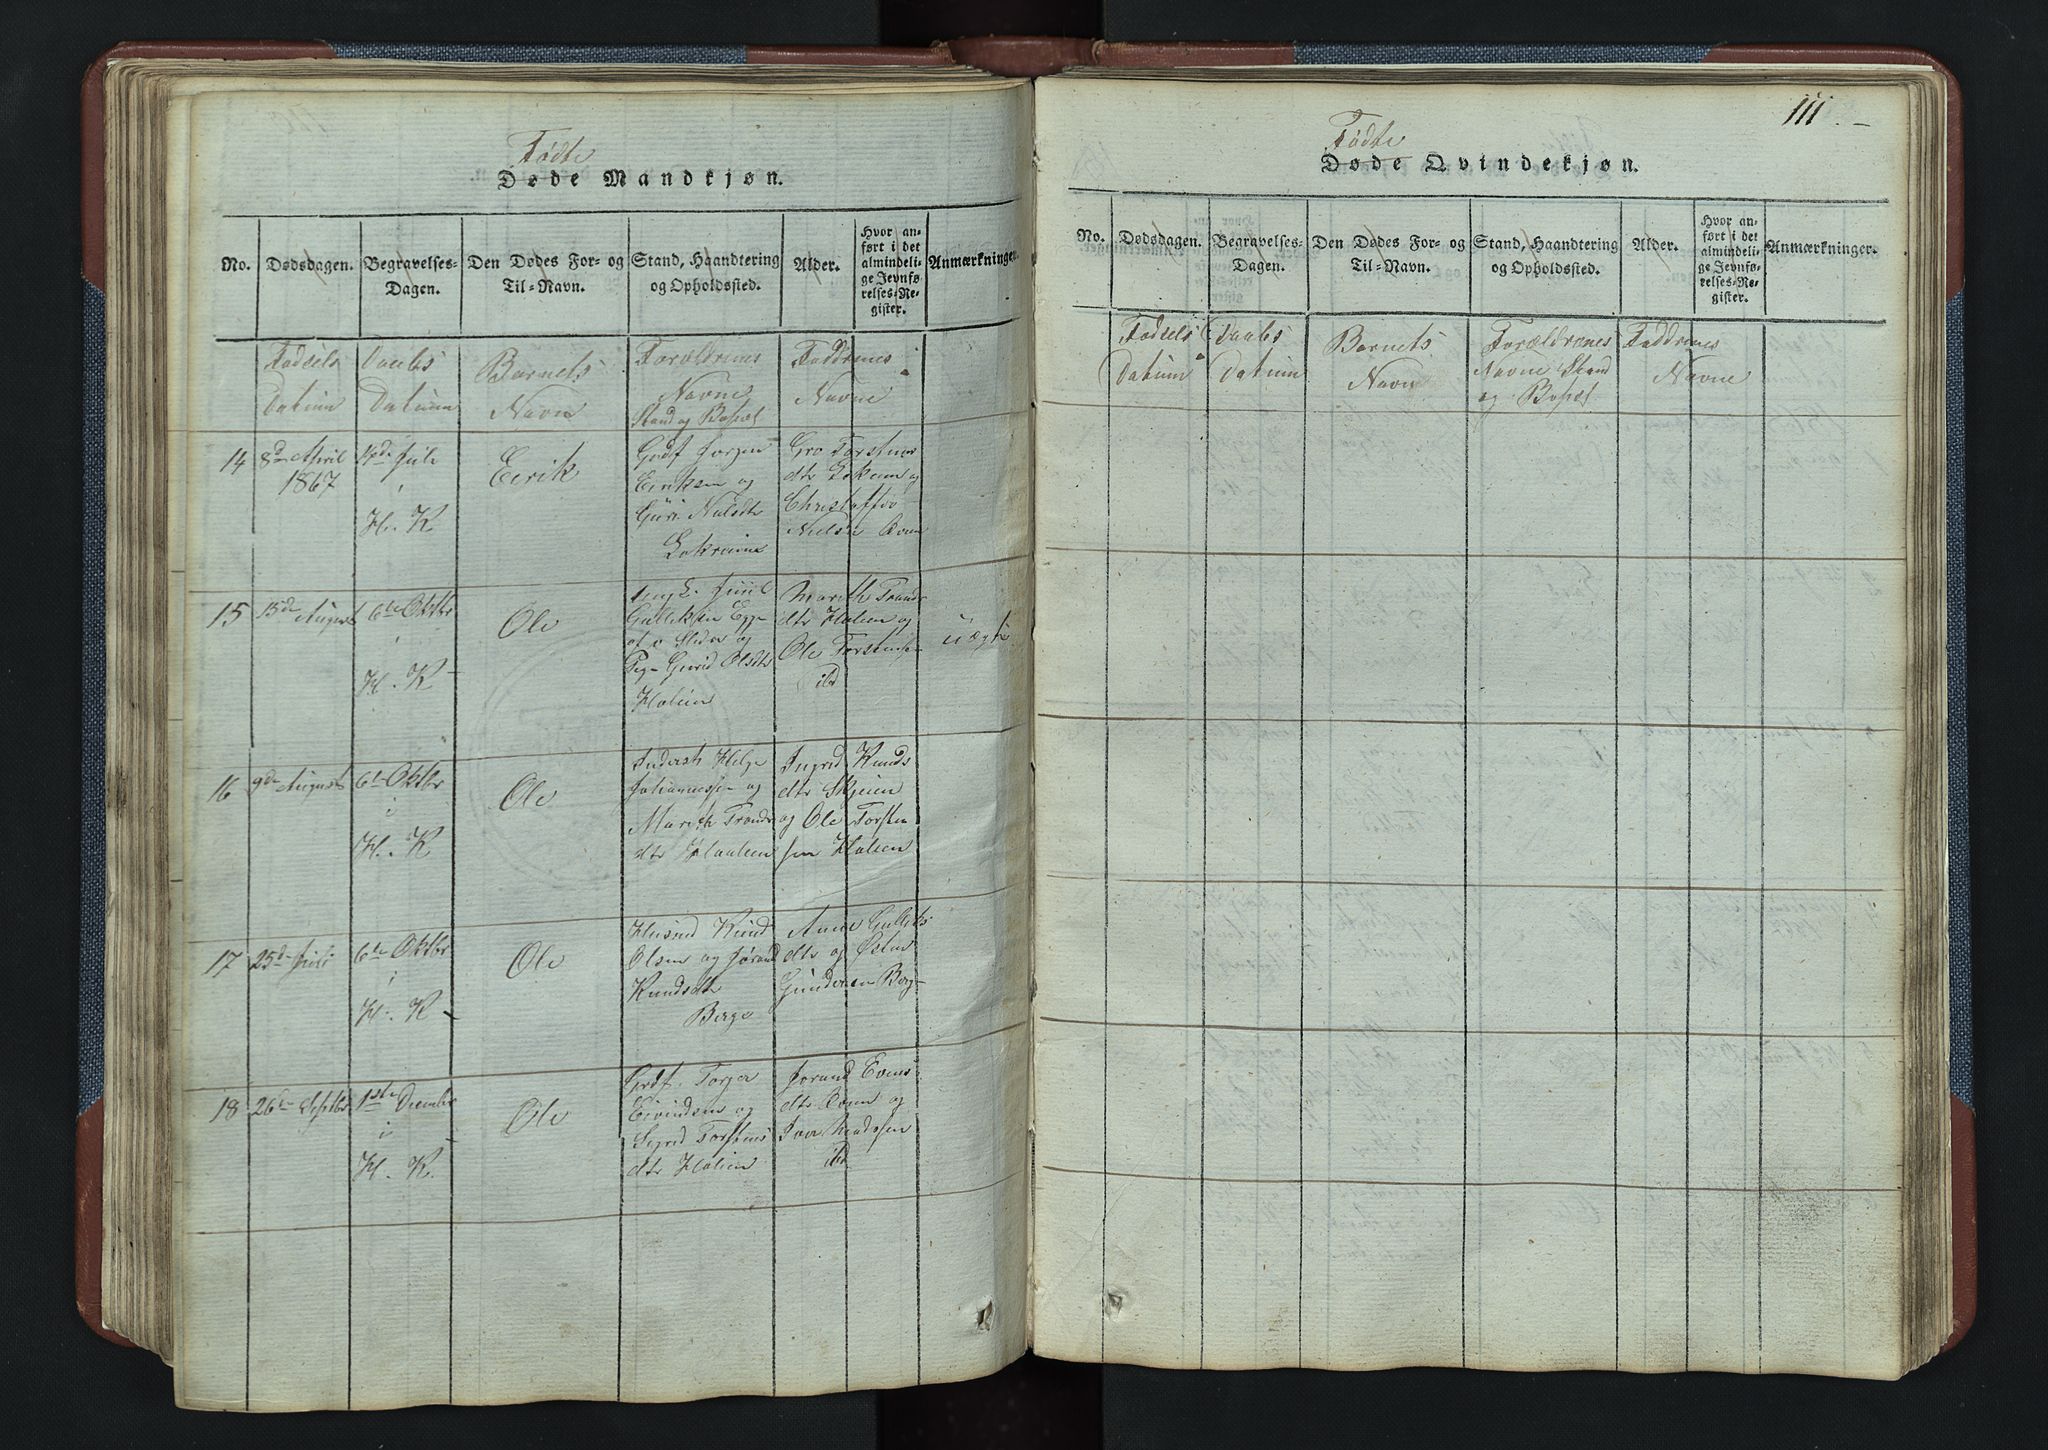 Fødte
Døde Mandkjøn.
No.
Dødsdagen.
Begravelses-
Dagen.
Den Dødes For- og
Til-Navn.
Stand, Haandtering
og Opholdssted.
Alder.
Hvor an-
ført i det
almindeli-
ge Jevnfø-
relses-Re-
gister.
Anmærkninger.
Fødsels
Datum
Daabs
Datum
Barnets
Navn
Forældrenes
Navne
Stand og Bopæl
Faddrenes
Navne
14
8de April
1867
14de Juli
i
H. K
Eerik
Grdf Jørgen
Eriksen og
Guri Nielsdtr
Lokreim
Gro Torstens
dtr Lokeim og
Christoffer
Nielsen Kvam
15
15de August
6te Oktbr
i
H. K
Ole
Ungk. Juul
Gulliksen Egge
af ø Slidre og
Pig- Gurid Olsdtr
Halien
Marith Tronds
dtr Halien og
Ole Torstensen
ibd
uægte
16
9de August
6te Oktbr
i
H. K
Ole
Inderst Helge
Johannessen og
Marith Tronds
dtr Haalien
Ingrid Knuds
dtr Skjeien
og Ole Torsten
sen Halien
17
25de Juli
6te Oktbr
i
H. K
Ole
Husmd Knud
Olsen og Jørand
Knudsdtr
Berge
Anne Gulliks
dtr og Østen
Gundersen Berg-
18
26de Septbr
1ste Decembr
i
H. K.
Ole
Grdf. Torger
Eivindsen og
Sigrid Torstens
dtr Halien
Jørand Evens
dtr Kvam og
Iver Madssen
ibd
111
Fødte
Døde Qvindekjøn.
No.
Dødsdagen.
Begravelses-
Dagen.
Den Dødes For- og
Til-Navn.
Stand, Haandtering
og Opholdssted.
Alder.
Hvor an-
ført i det
almindeli-
ge Jevnfø-
relses-Re-
gister.
Anmærkninger.
Fødsels
Datum
Daabs
Datum
Barnets
Navn
Forældrenes
Navne Stand
og Bopæl
Faddrenes
Navne